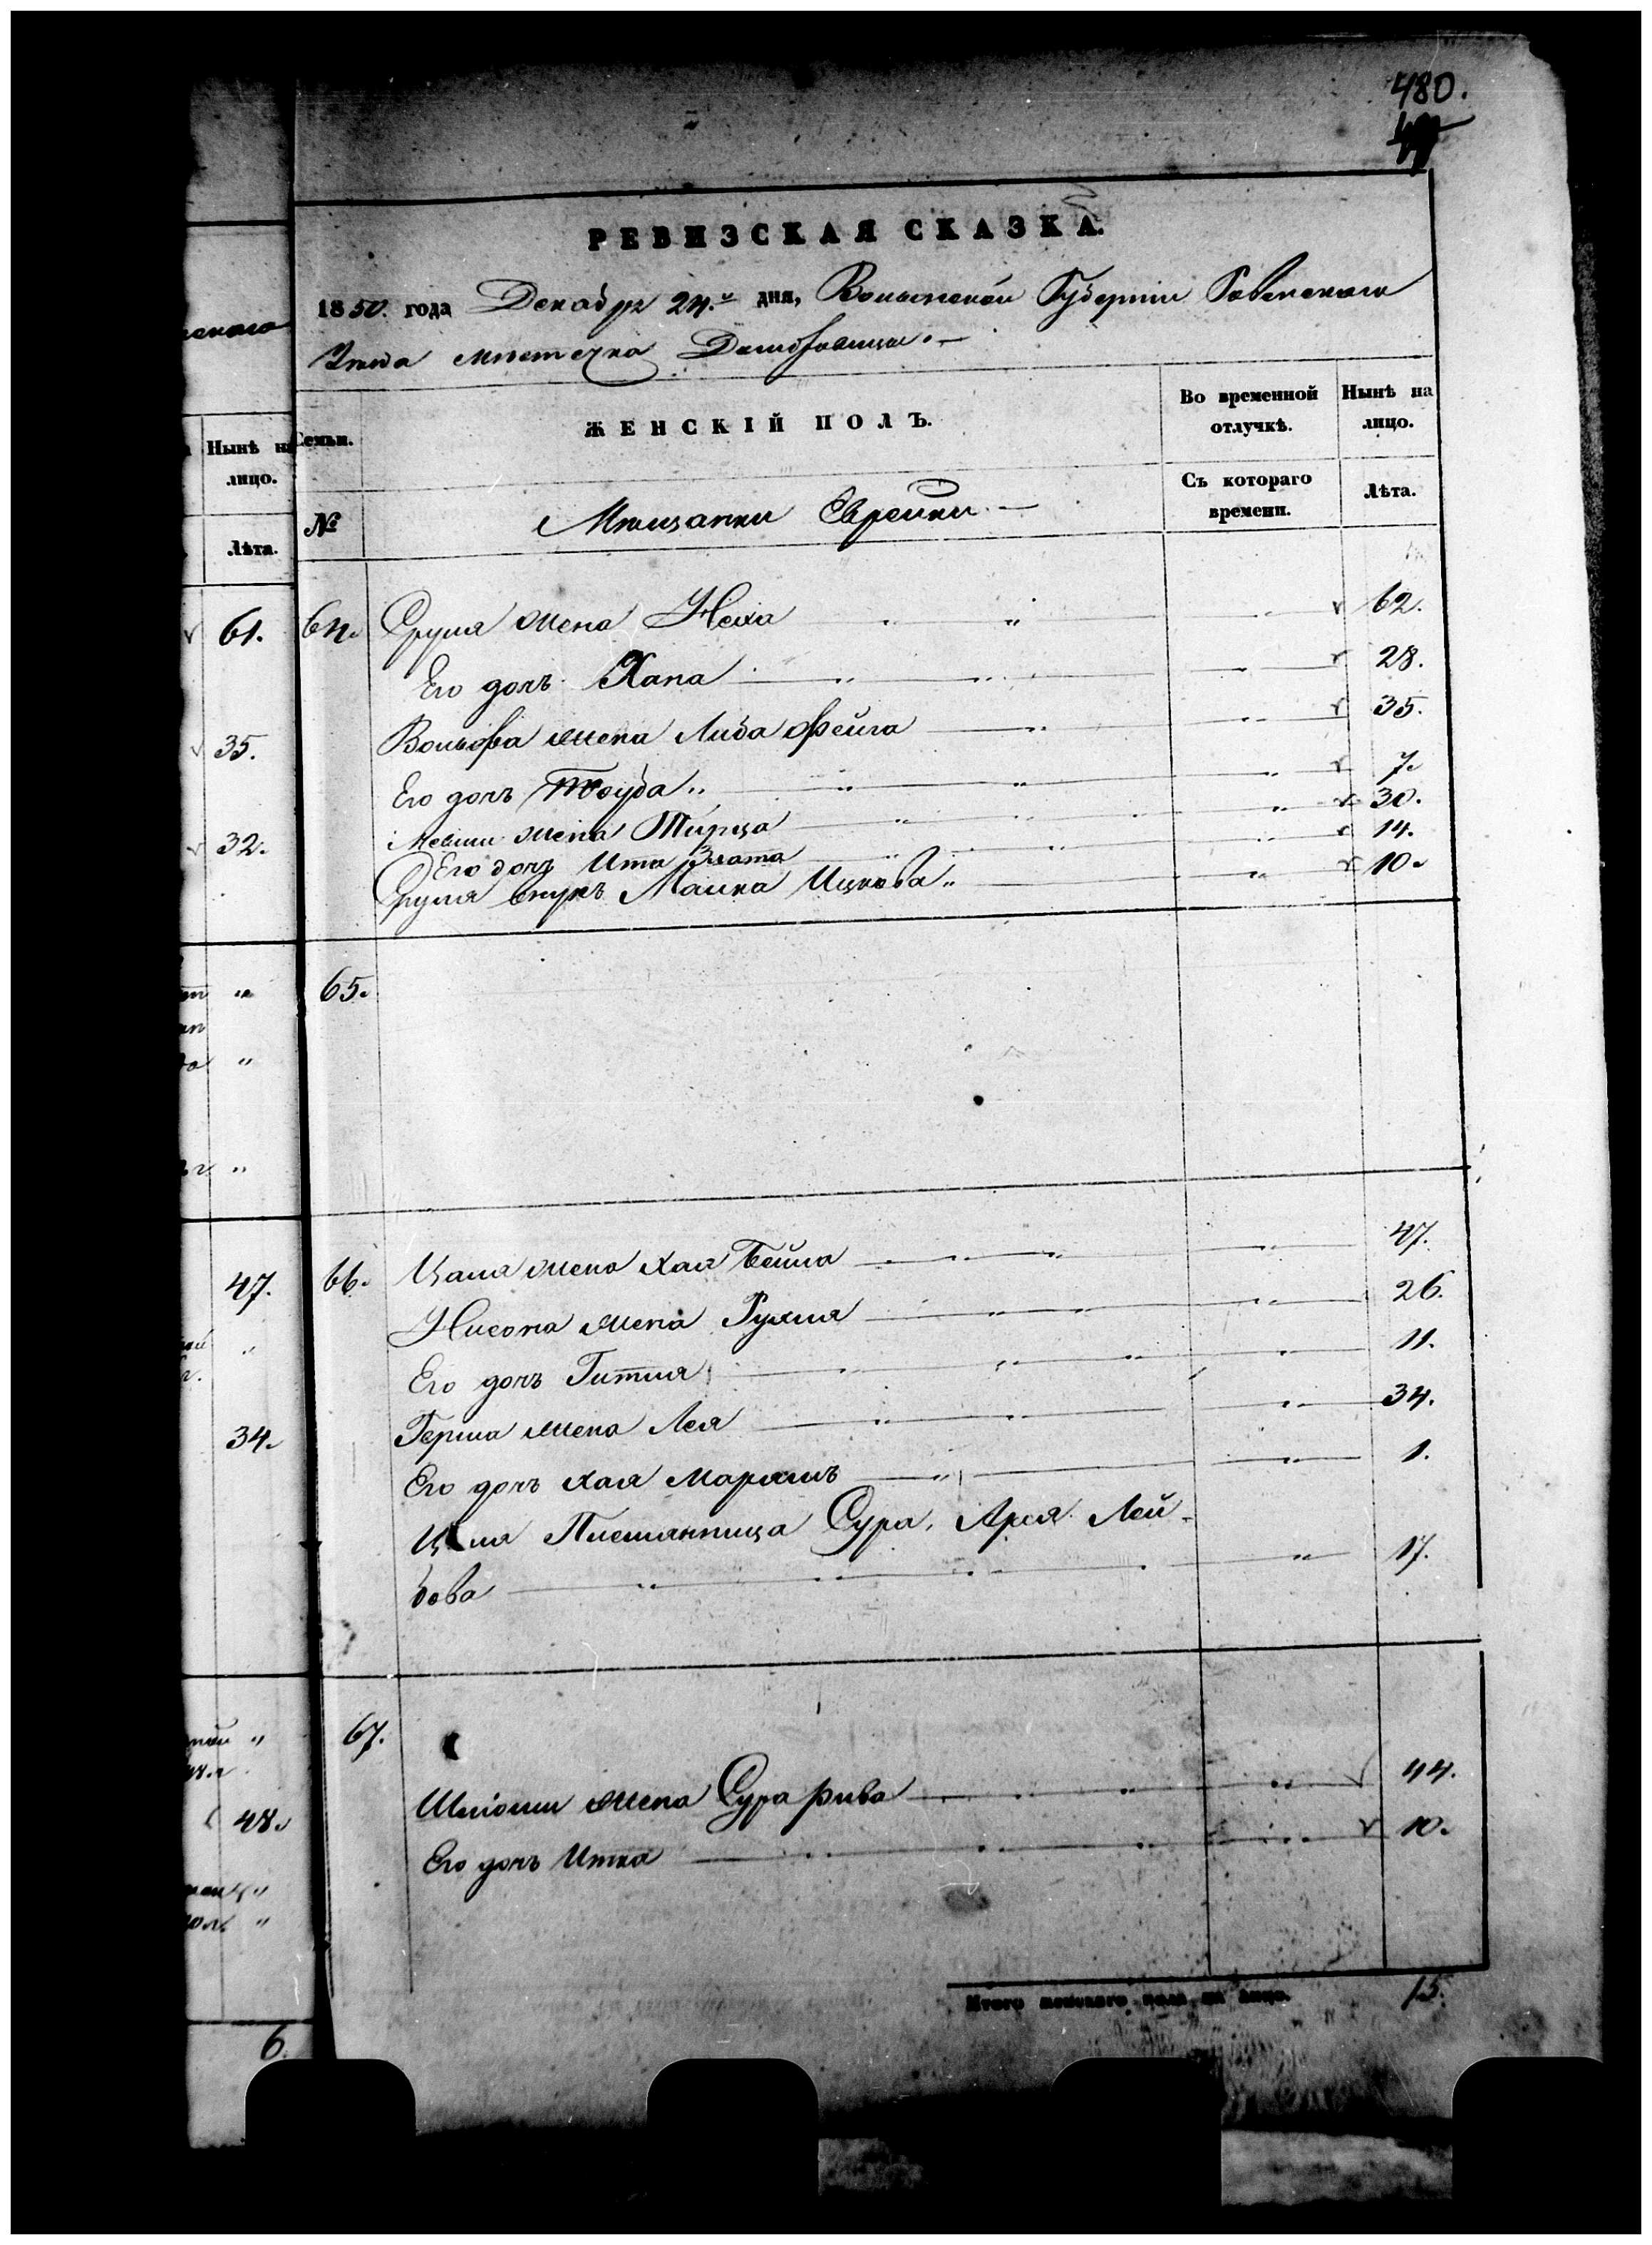 480.
РЕВИЗСКАЯ СКАЗКА.
1850. года Декабря 24.го дня, Волынской Губернии Ровенского
Уезда местечка Домбровицы.
ского
Нынѣ на лицо.
Лѣта.
Семьи.
№
ЖЕНСКІЙ ПОЛЪ.
Мещанки Еврейки
Во временной отлучкѣ.
Съ котораго времени.
Нынѣ на лицо.
Лѣта.
61. 64. Сруля жена Неха 62.
Его дочь Хана 28.
35. Вольфа жена Либа Фейга 35.
Его дочь Тауба 7.
Мевши жена Тирца 30.
32. Его дочь Ита Злата 14.
Сруля внука Малка Ицкова 10.
65.
47. 66. Цаля жена Хая Бейла 47.
Нисона жена Рухля 26.
Его дочь Гитля 11.
34. Герша жена Лея 34.
Его дочь Хая Марьямъ 1.
Племянница Сура, Лей-
бова 17.
67.
48. Шліомы жена Сура Рива 44.
Его дочь Итка 10.
Итого женскаго пола на лицо. 15.
6.